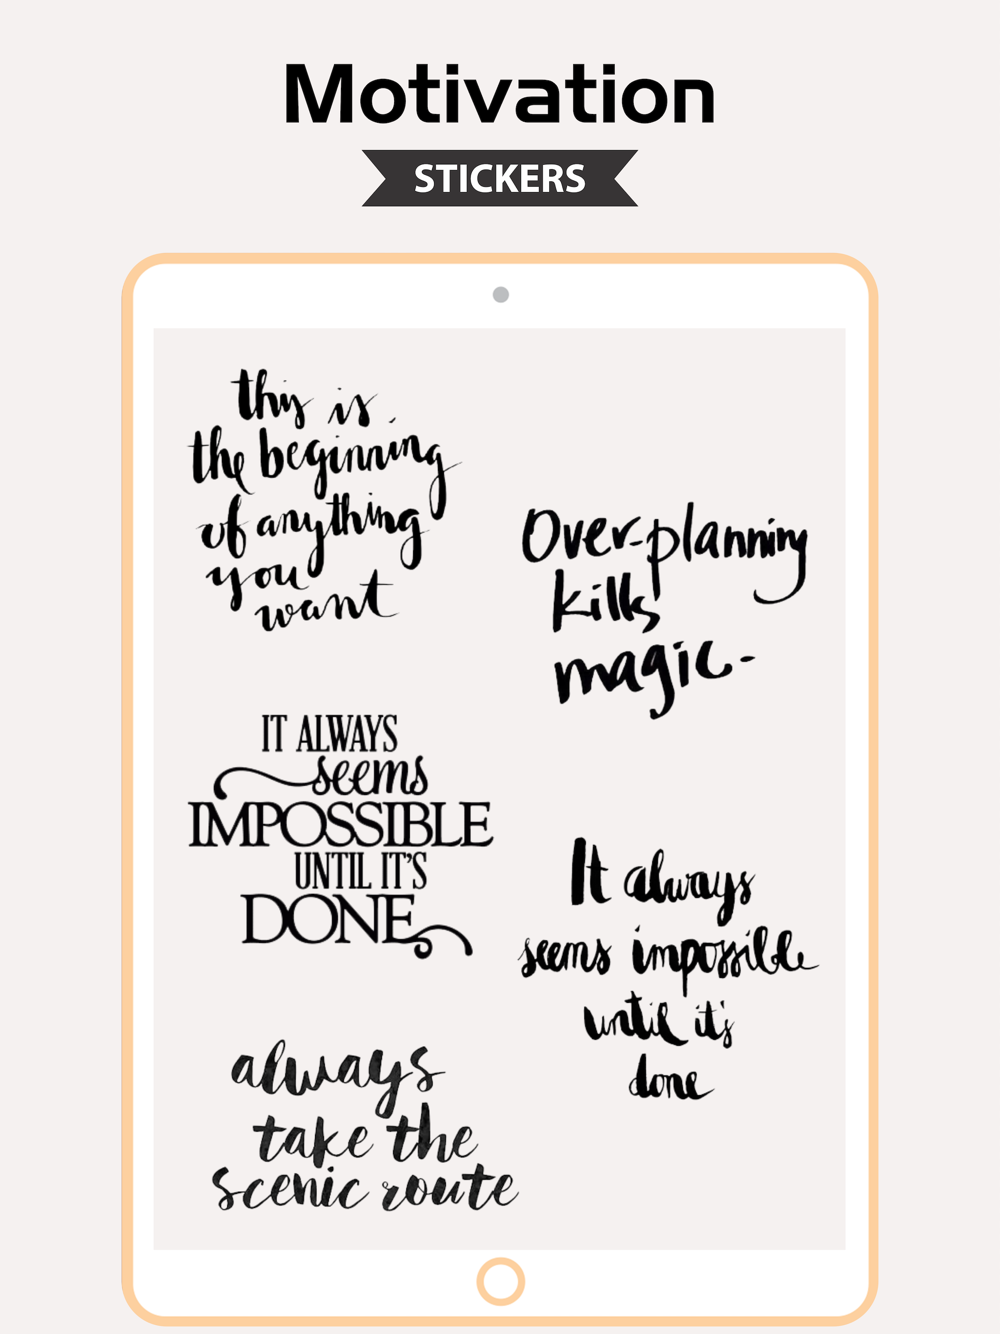 Motivation
STICKERS
this is
the beginning
of anything
you
want
Over-planning
kills
magic-
IT ALWAYS
seems
IMPOSSIBLE
UNTIL IT'S
DONE
It always
seems impossible
until it's
done
always
take the
scenic route